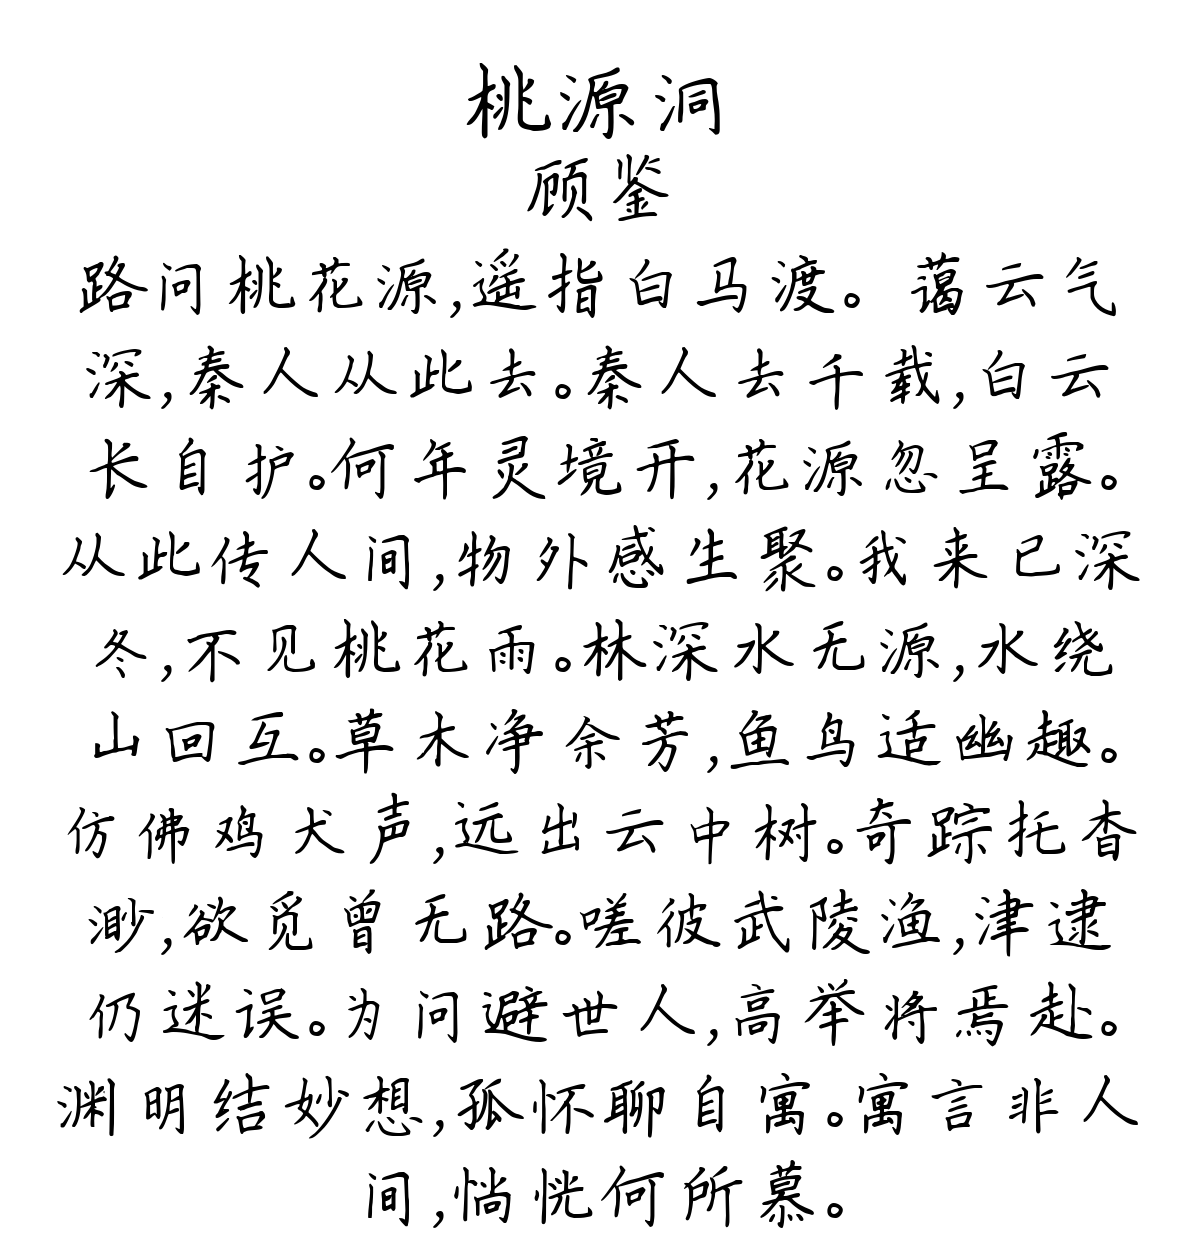 桃源洞
顾鉴
路问桃花源,遥指白马渡。蔼云气
深,秦人从此去。秦人去千载,白云
长自护。何年灵境开,花源忽呈露。
从此传人间,物外感生聚。我来已深
冬,不见桃花雨。林深水无源,水绕
山回互。草木净余芳,鱼鸟适幽趣。
仿佛鸡犬声,远出云中树。奇踪托杳
渺,欲觅曾无路。嗟彼武陵渔,津逮
仍迷误。为问避世人,高举将焉赴。
渊明结妙想,孤怀聊自寓。寓言非人
间,惝恍何所慕。